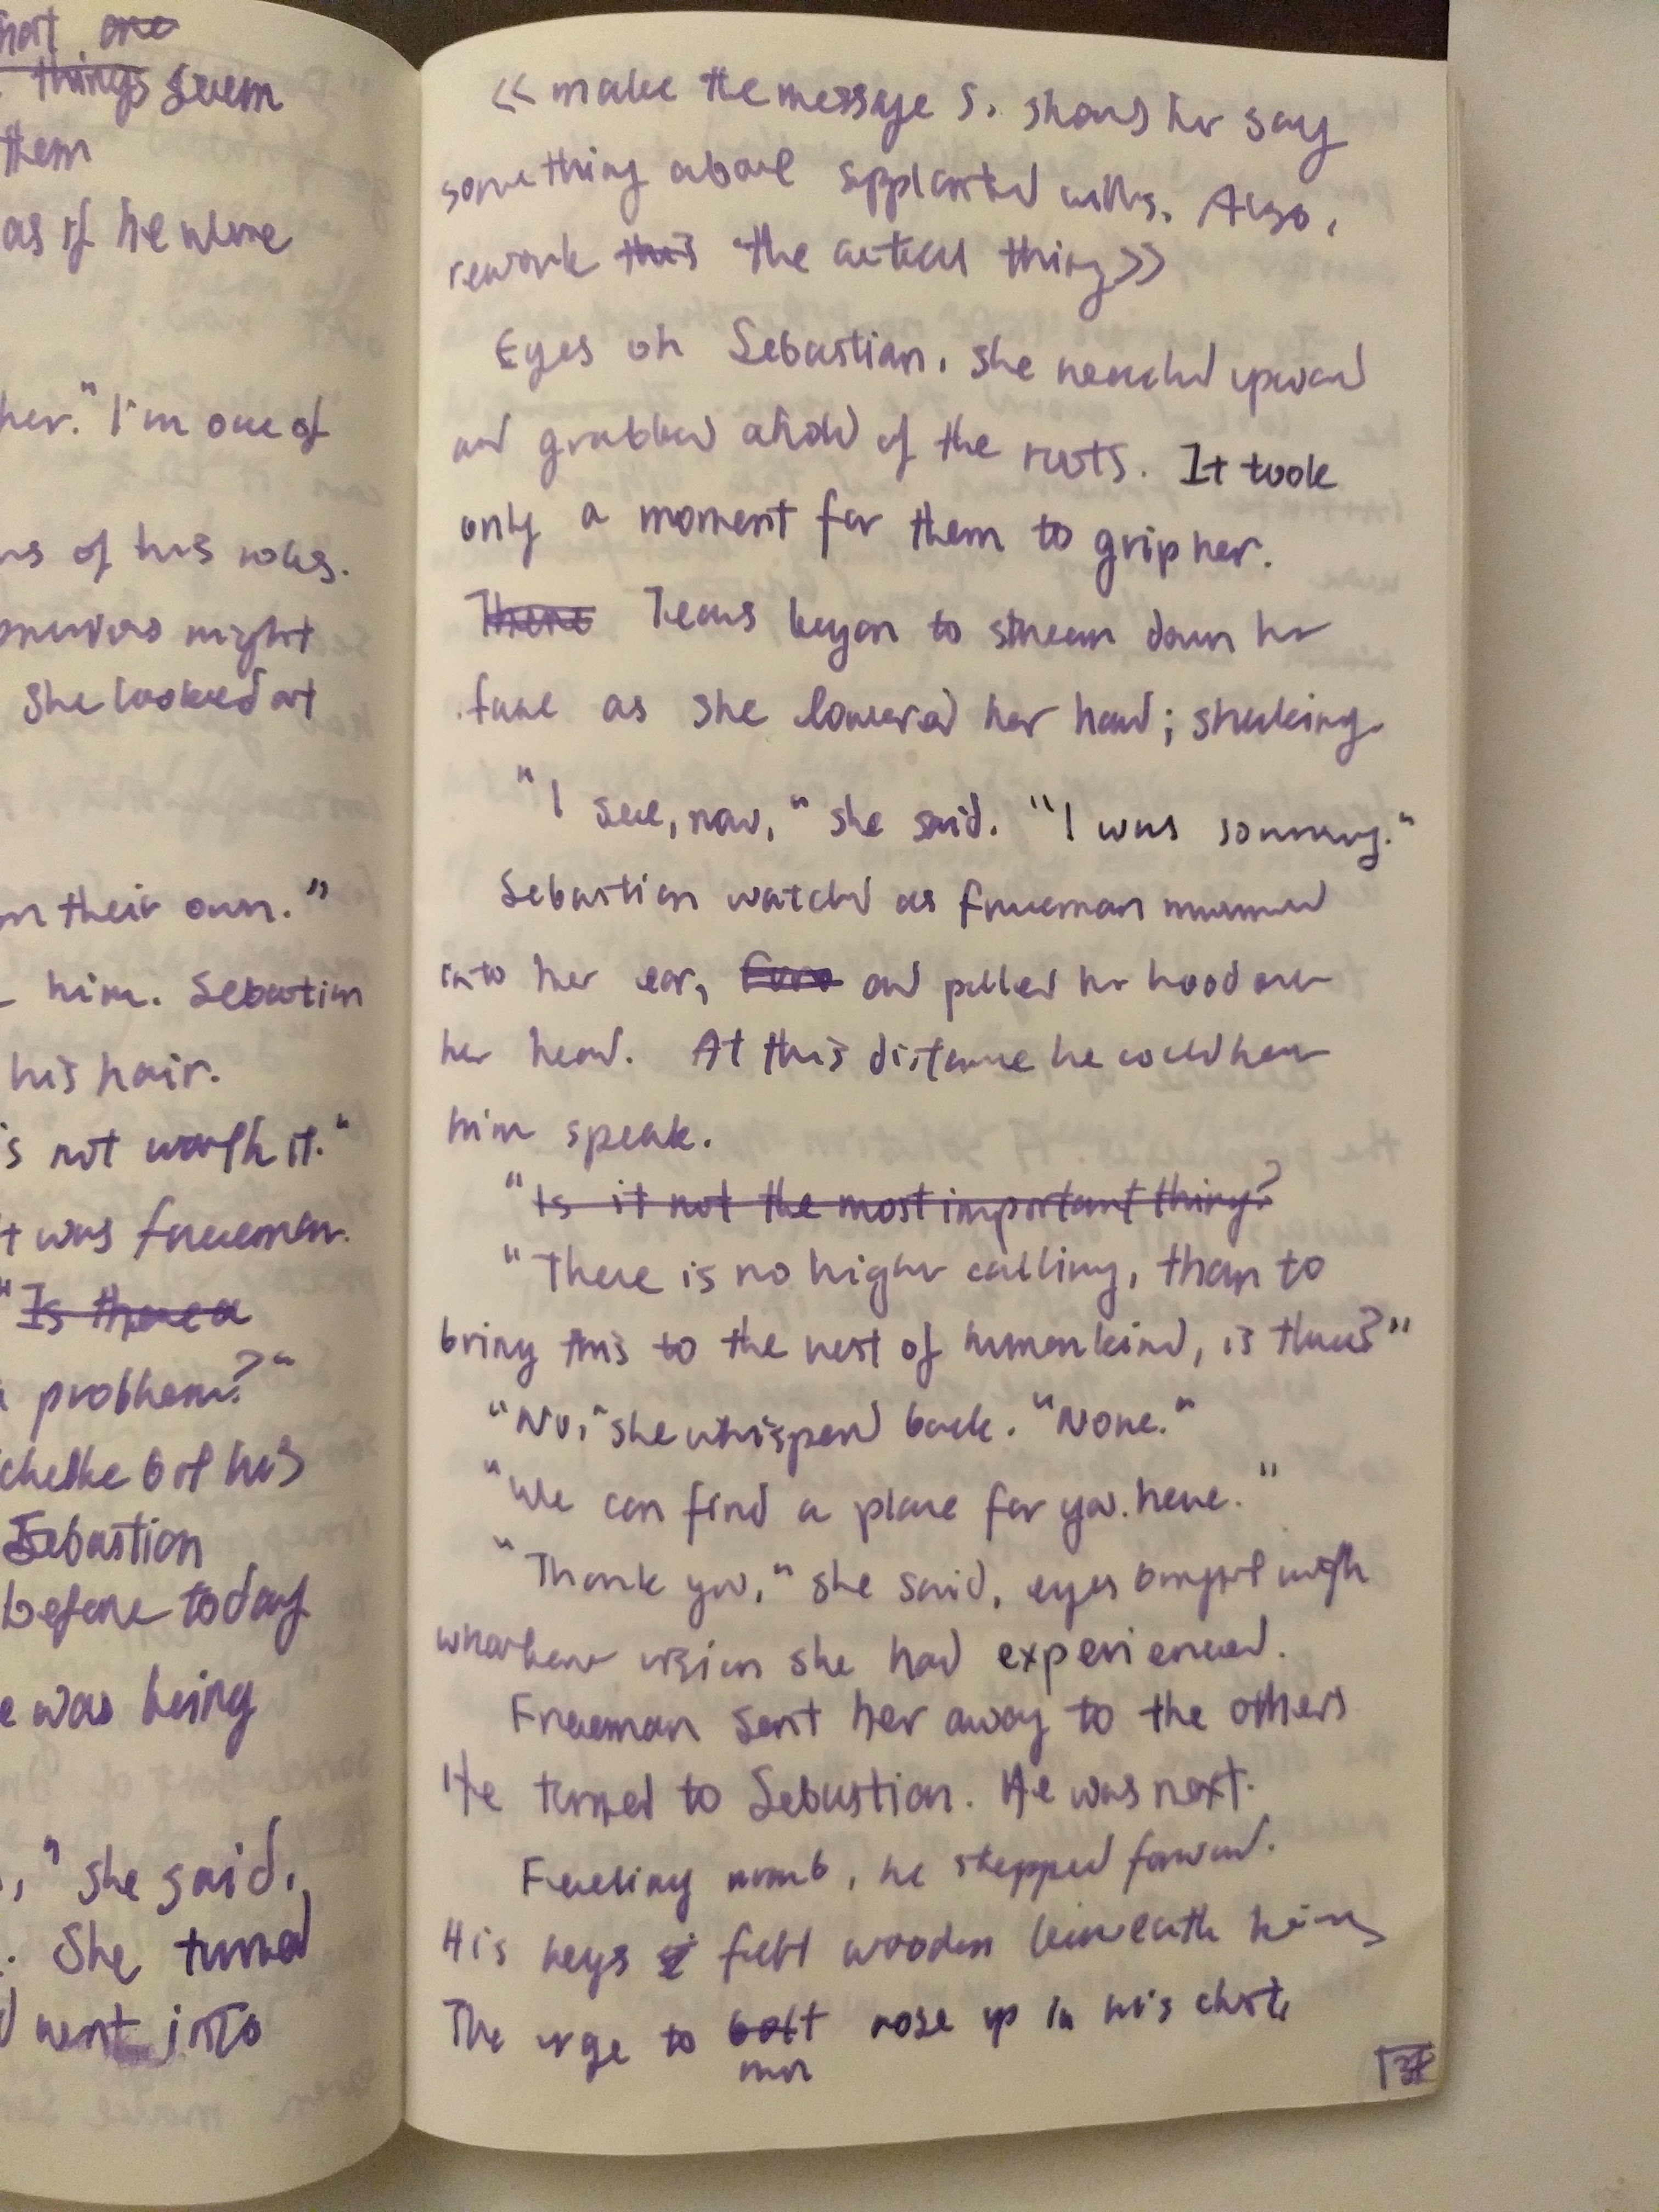 hort one
things seem
them
as if he were
her." I'm one of
ns of his robes.
might
She looked at
on their own."
him. Sebastian
his hair.
's not worth it."
t was freeman.
"Is there a
problem?"
bit his
Sebastian
before today
e was being
," she said.
. She turned
d went into
<< make the message S. shows her say
something about supplanted wills. Also,
rework this the actual thing>>
Eyes on Sebastian, she reached upward
and grabbed ahold of the roots. It took
only a moment for them to grip her.
There Tears began to stream down her
face as she lowered her head; shaking
"I see, now," she said. "I was
Sebastian watched as freeman murmured
into her ear, and pulled her hood over
her head. At this distance he could hear
him speak.
"Is it not the most important thing?
"There is no higher calling, than to
bring this to the rest of humankind, is there?"
"No," she whispered back. "None."
"We can find a place for you here."
"Thank you," she said, eyes bright with
whatever vision she had experienced.
Freeman sent her away to the others
He turned to Sebastian. He was next.
Feeling numb, he stepped forward.
His felt wooden beneath him,
The urge to bolt rose up in his chest,
run